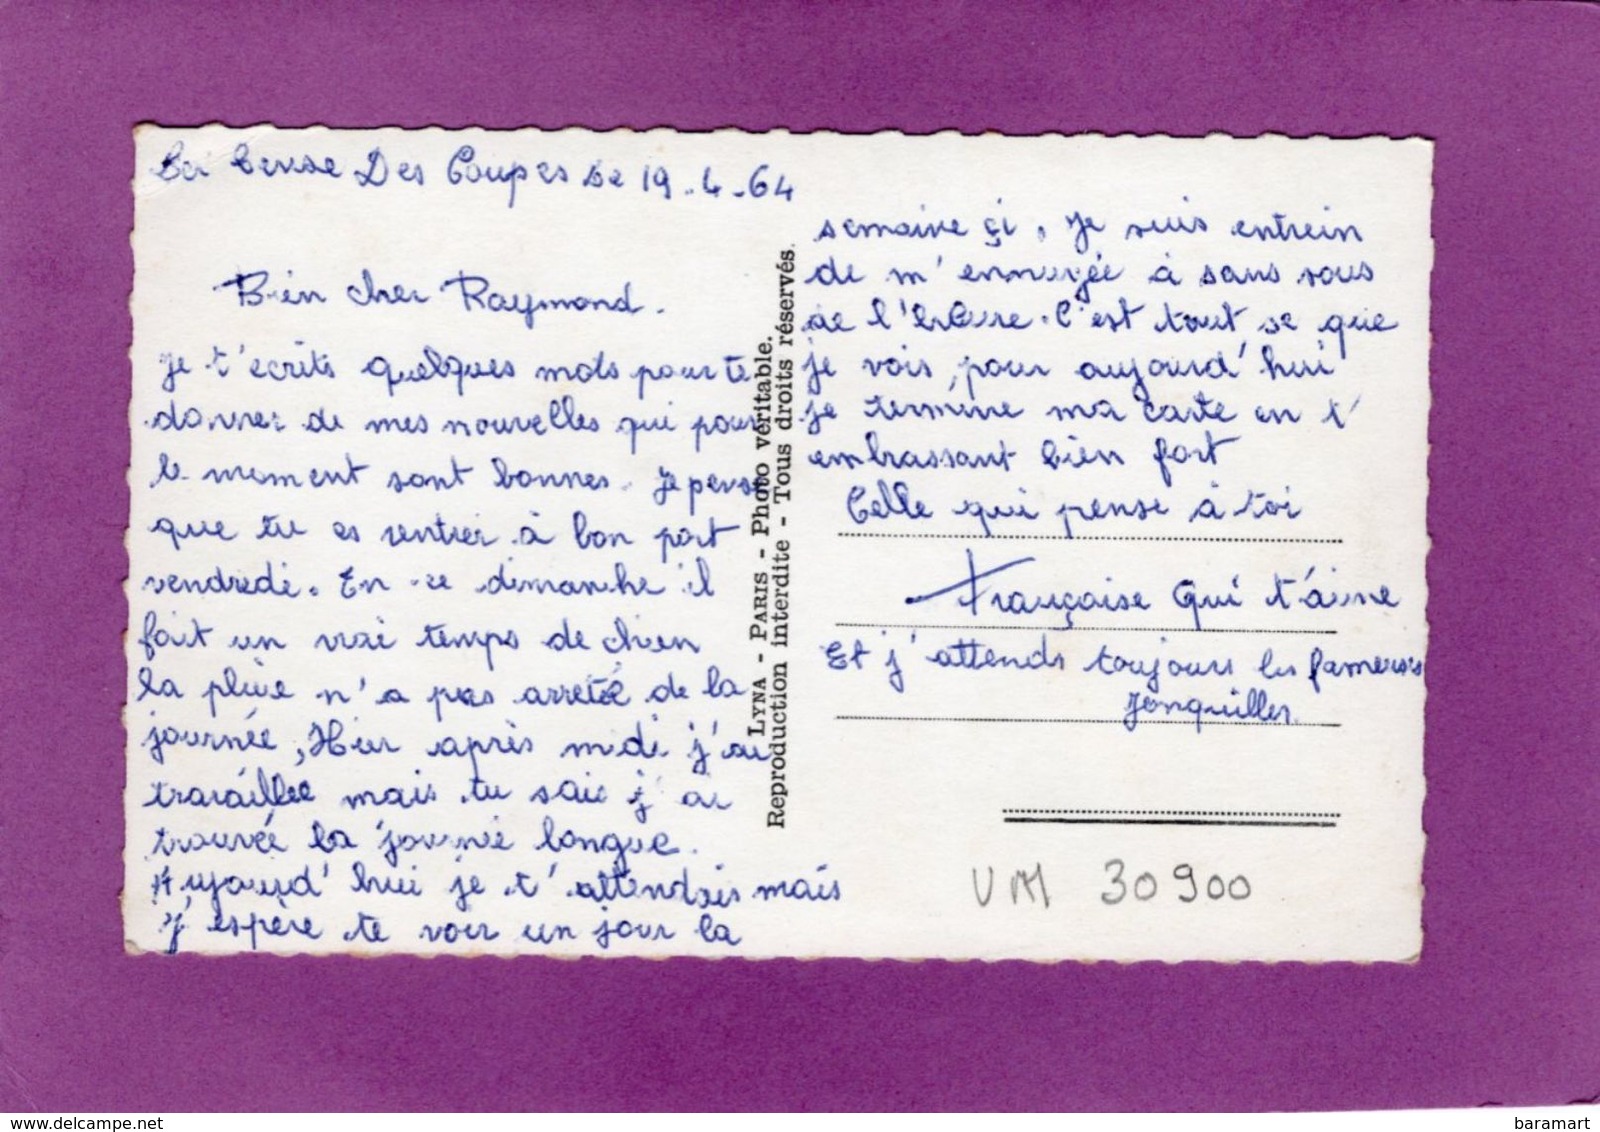 Des Coupes Le 19-4-64
Bien cher Raymond.
je t'écrits quelques mots pour te
donner de mes nouvelles qui pour
le moment sont bonnes. je pense
que tu es rentrer à bon port
vendredi. En ce dimanche il
fait un vrai temps de chien
la pluie n'a pas arretée de la
journée, Hier après midi j'ai
travaillée mais tu sais j'ai
trouvée la journée longue.
Aujourd'hui je t'attendais mais
j'espère te voir un jour la
LYNA - PARIS - Photo véritable.
Reproduction interdite - Tous droits réservés.
semaine çi. je suis entrein
de m'ennuyée à sans vous
de l'. C'est tout se que
je vois, pour aujourd'hui
je termine ma carte en t'
embrassant bien fort
Celle qui pense à toi
Françoise Qui t'aime
Et j'attends toujours les fameuses
Jonquilles
VM 30900
www.delcampe.net
baramart